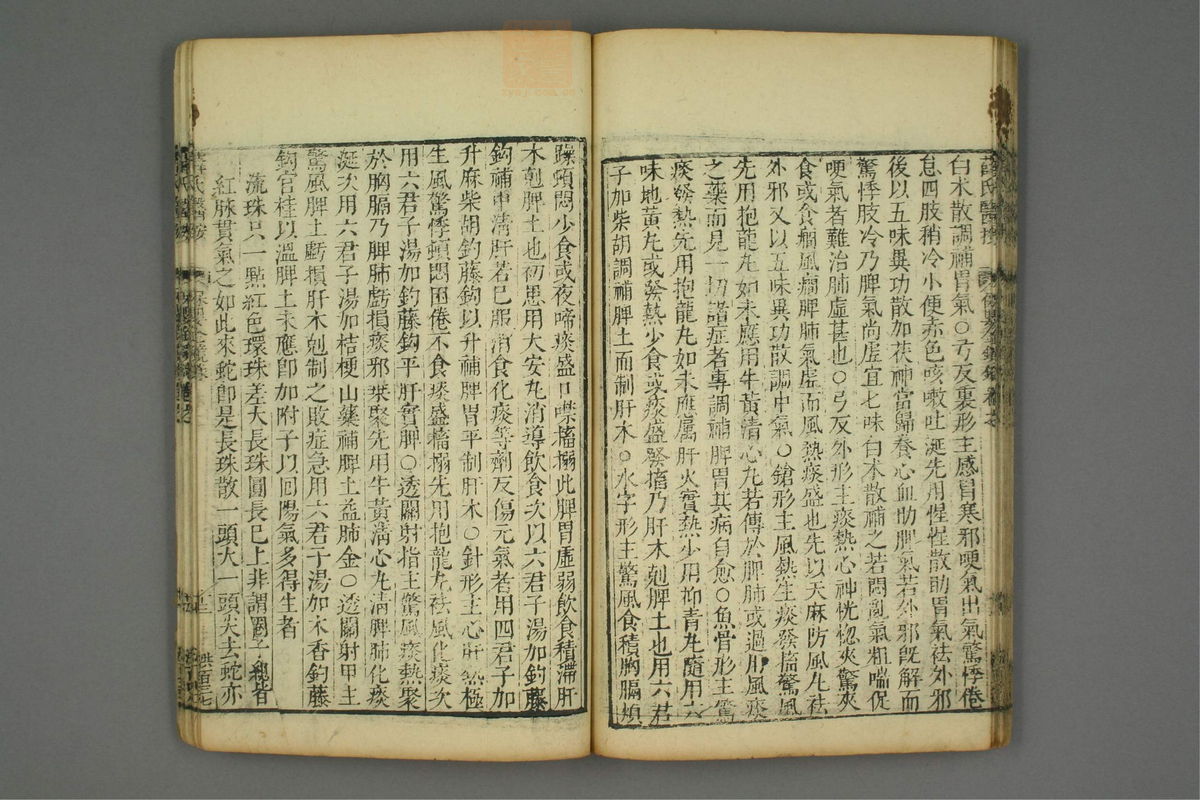 白术散調補胃氣○弓反裏形主感冒寒邪哽氣出氣驚悸倦
怠四肢稍冷小便赤色咳嗽吐涎先用惺惺散助胃氣祛外邪
後以五味異功散加茯神當歸養心血助脾氣若外邪旣解而
驚悸肢冷乃脾氣尚虛宜七味白术散補之若悶亂氣粗喘促
哽氣者難治肺虛甚也○弓反外形主痰熱心神恍惚夾驚夾
食或食癇風癎脾肺氣虛而風熱痰盛也先以天麻防風丸祛
外邪又以五味異功散調中氣○鎗形主風熱生痰發搐驚風
先用抱龍丸如未應用牛黃清心丸若傳於脾肺或過用風痰
之藥而見一切諸症者專調補脾胃其病自愈○魚骨形主驚
痰發熱先用抱龍丸如未應屬肝火實熱少用抑青丸隨用六
味地黃丸或發熱少食或痰盛發搐乃肝木剋脾土也用六君
子加柴胡調補脾土而制肝木○水字形主驚風食積胸膈煩
躁頓悶少食或夜啼痰盛口噤搐搦此脾胃虛弱飲食積滯肝
木剋脾土也初患用大安丸消導飲食次以六君子湯加釣藤
鈎補中淸肝若已服消食化痰等劑反傷元氣者用四君子加
升麻柴胡釣藤鈎以升補脾胃平制肝木○針形主心肝熱極
生風驚悸頓悶困倦不食痰盛搐搦先用抱龍丸祛風化痰次
用六君子湯加釣藤鈎平肝實脾○透關射指主驚風痰熱聚
於胸膈乃脾肺虧損痰邪乘聚先用牛黃淸心丸淸脾肺化痰
涎次用六君子湯加桔梗山藥補脾土益肺金○透關射甲主
驚風脾土虧損肝木剋制之敗症急用六君子湯加木香釣藤
鈎官桂以溫脾土未應卽加附子以回陽氣多得生者
流珠只一點紅色環珠差大長珠圓長已上非謂圈子總皆
紅脉貫氣之如此來蛇卽是長珠散一頭大一頭尖去蛇亦